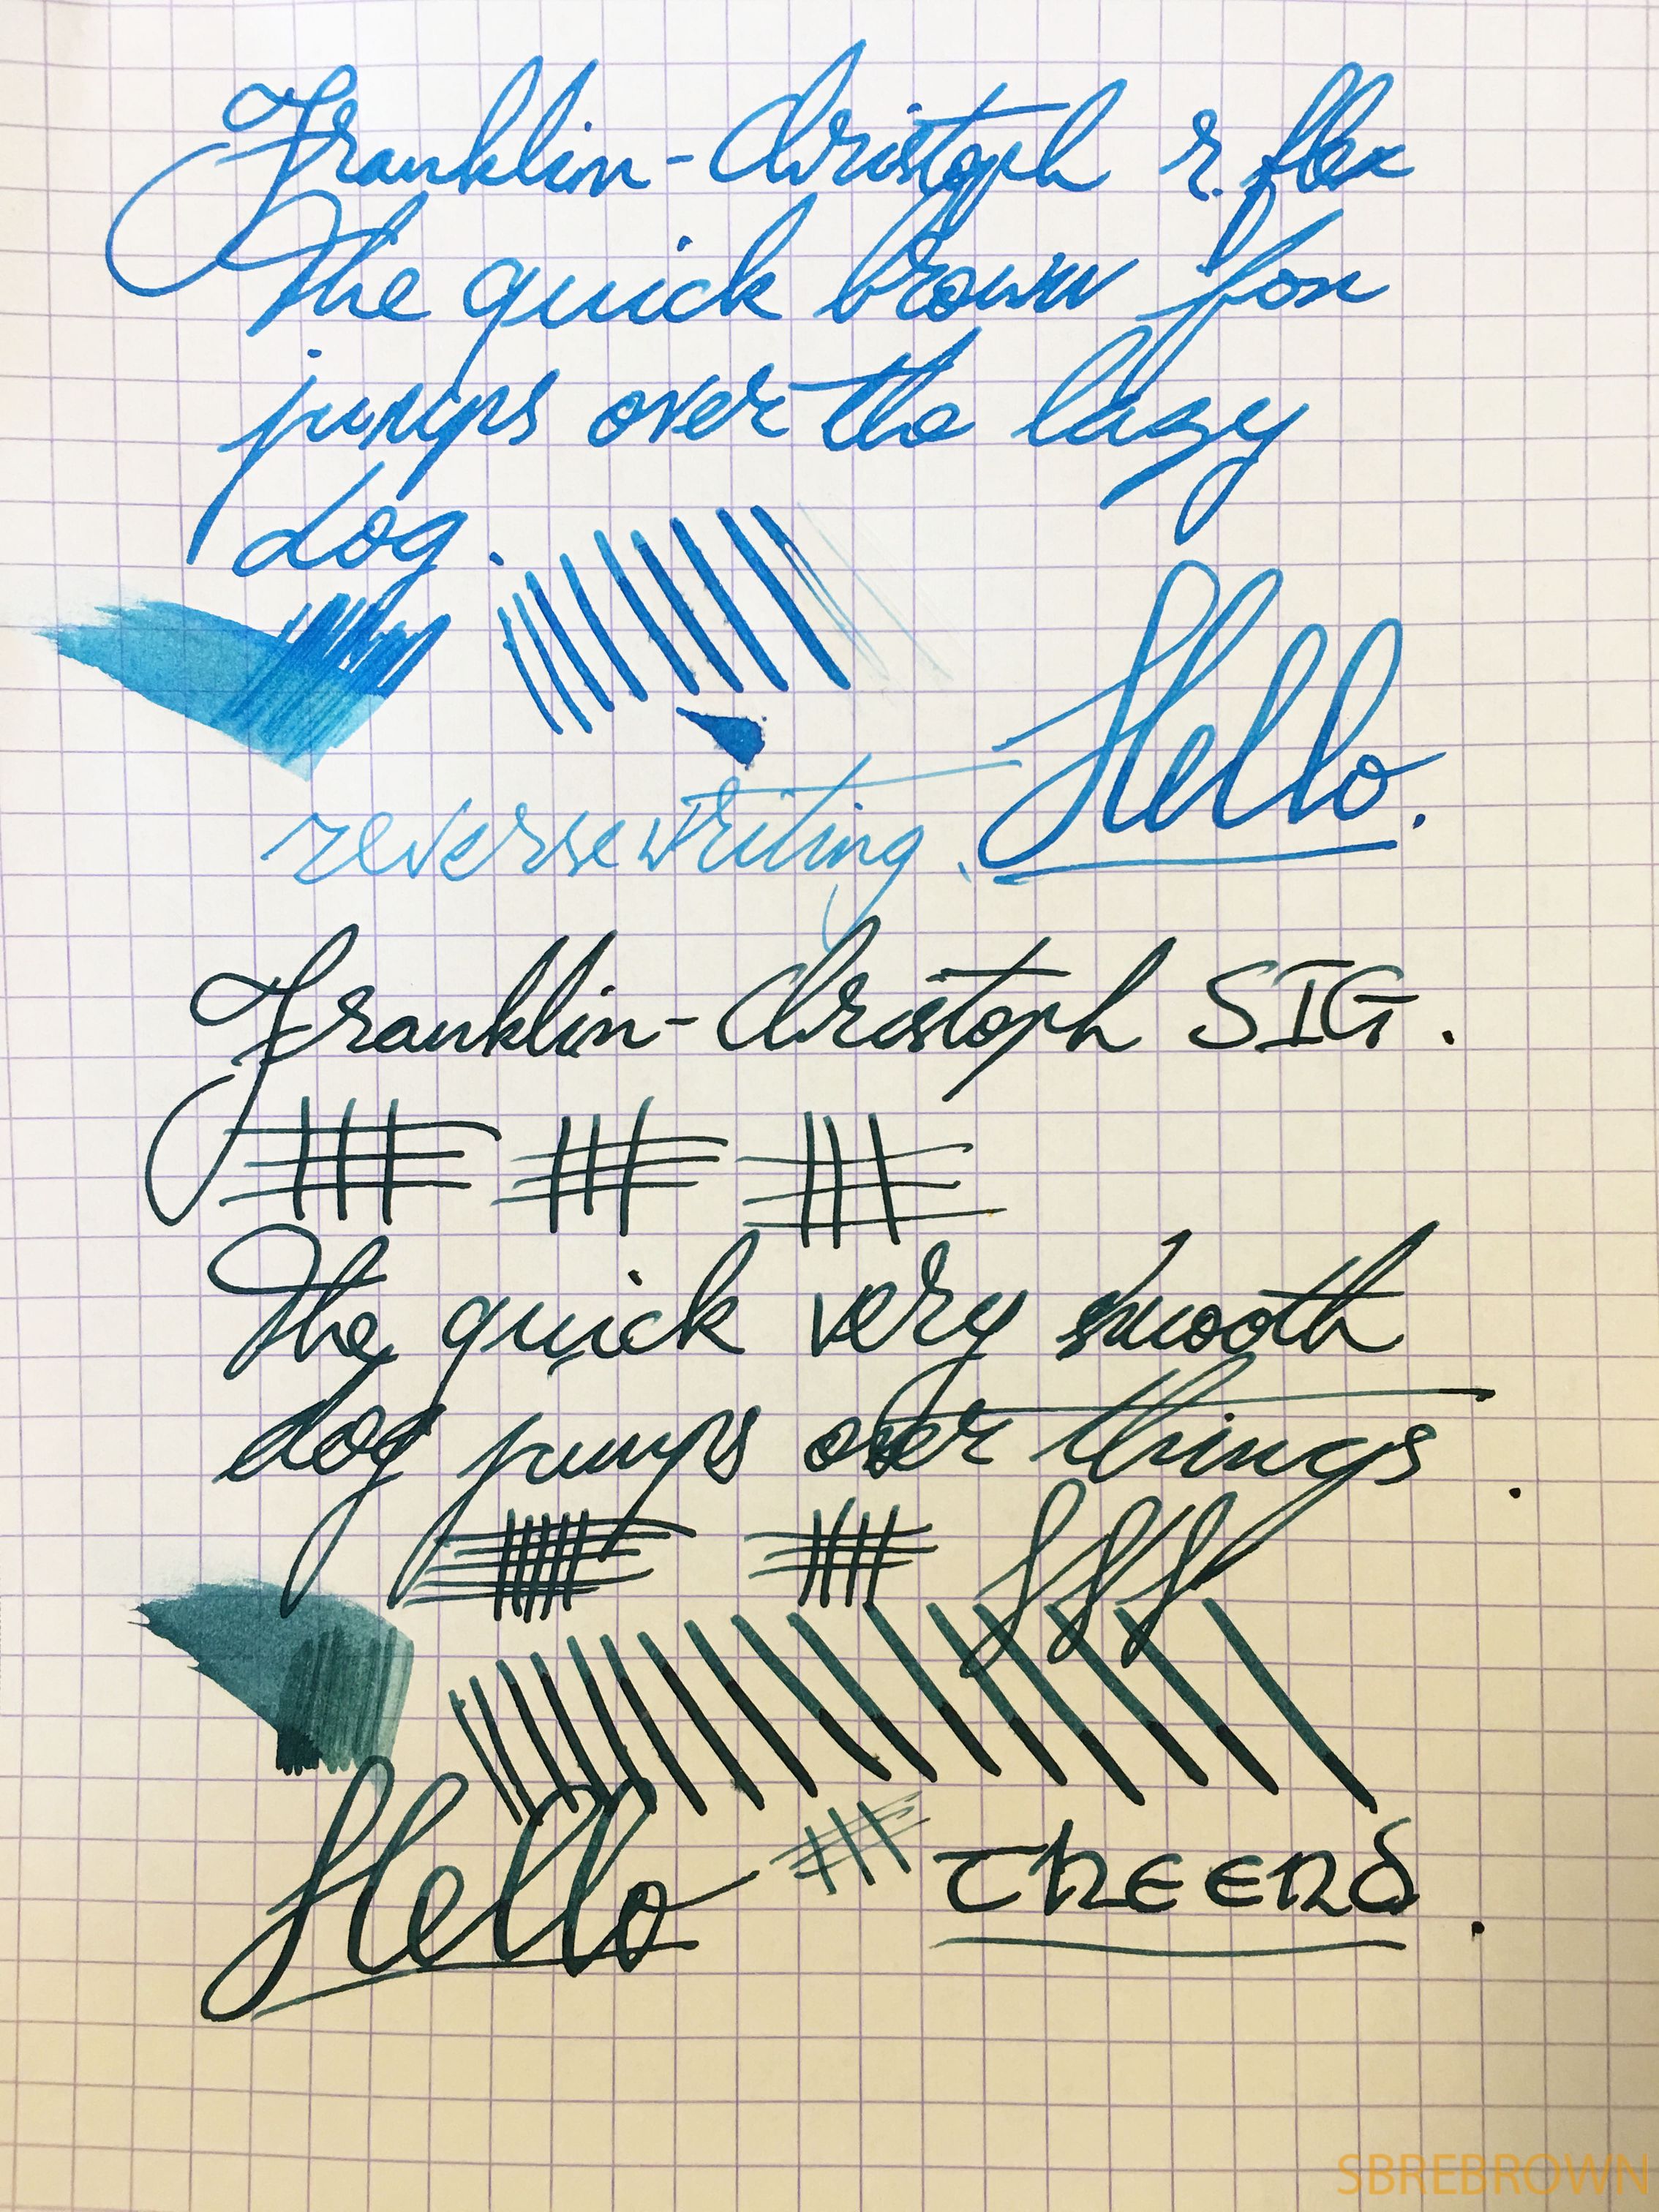 Franklin-Christoph r. flex
The quick brown fox
jumps over the lazy
dog.
Hello.
reverse writing.
Franklin-Christoph SIG.
The quick very smooth
dog jumps over things.
fff
Hello
THE END.
SBREBROWN